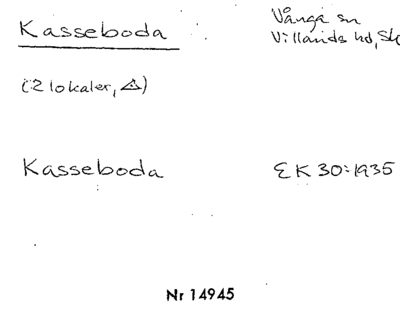 Kasseboda
Vånga sn
Villands hd, Sk
(2 lokaler, △)
Kasseboda
EK 30:1935
Nr 14945